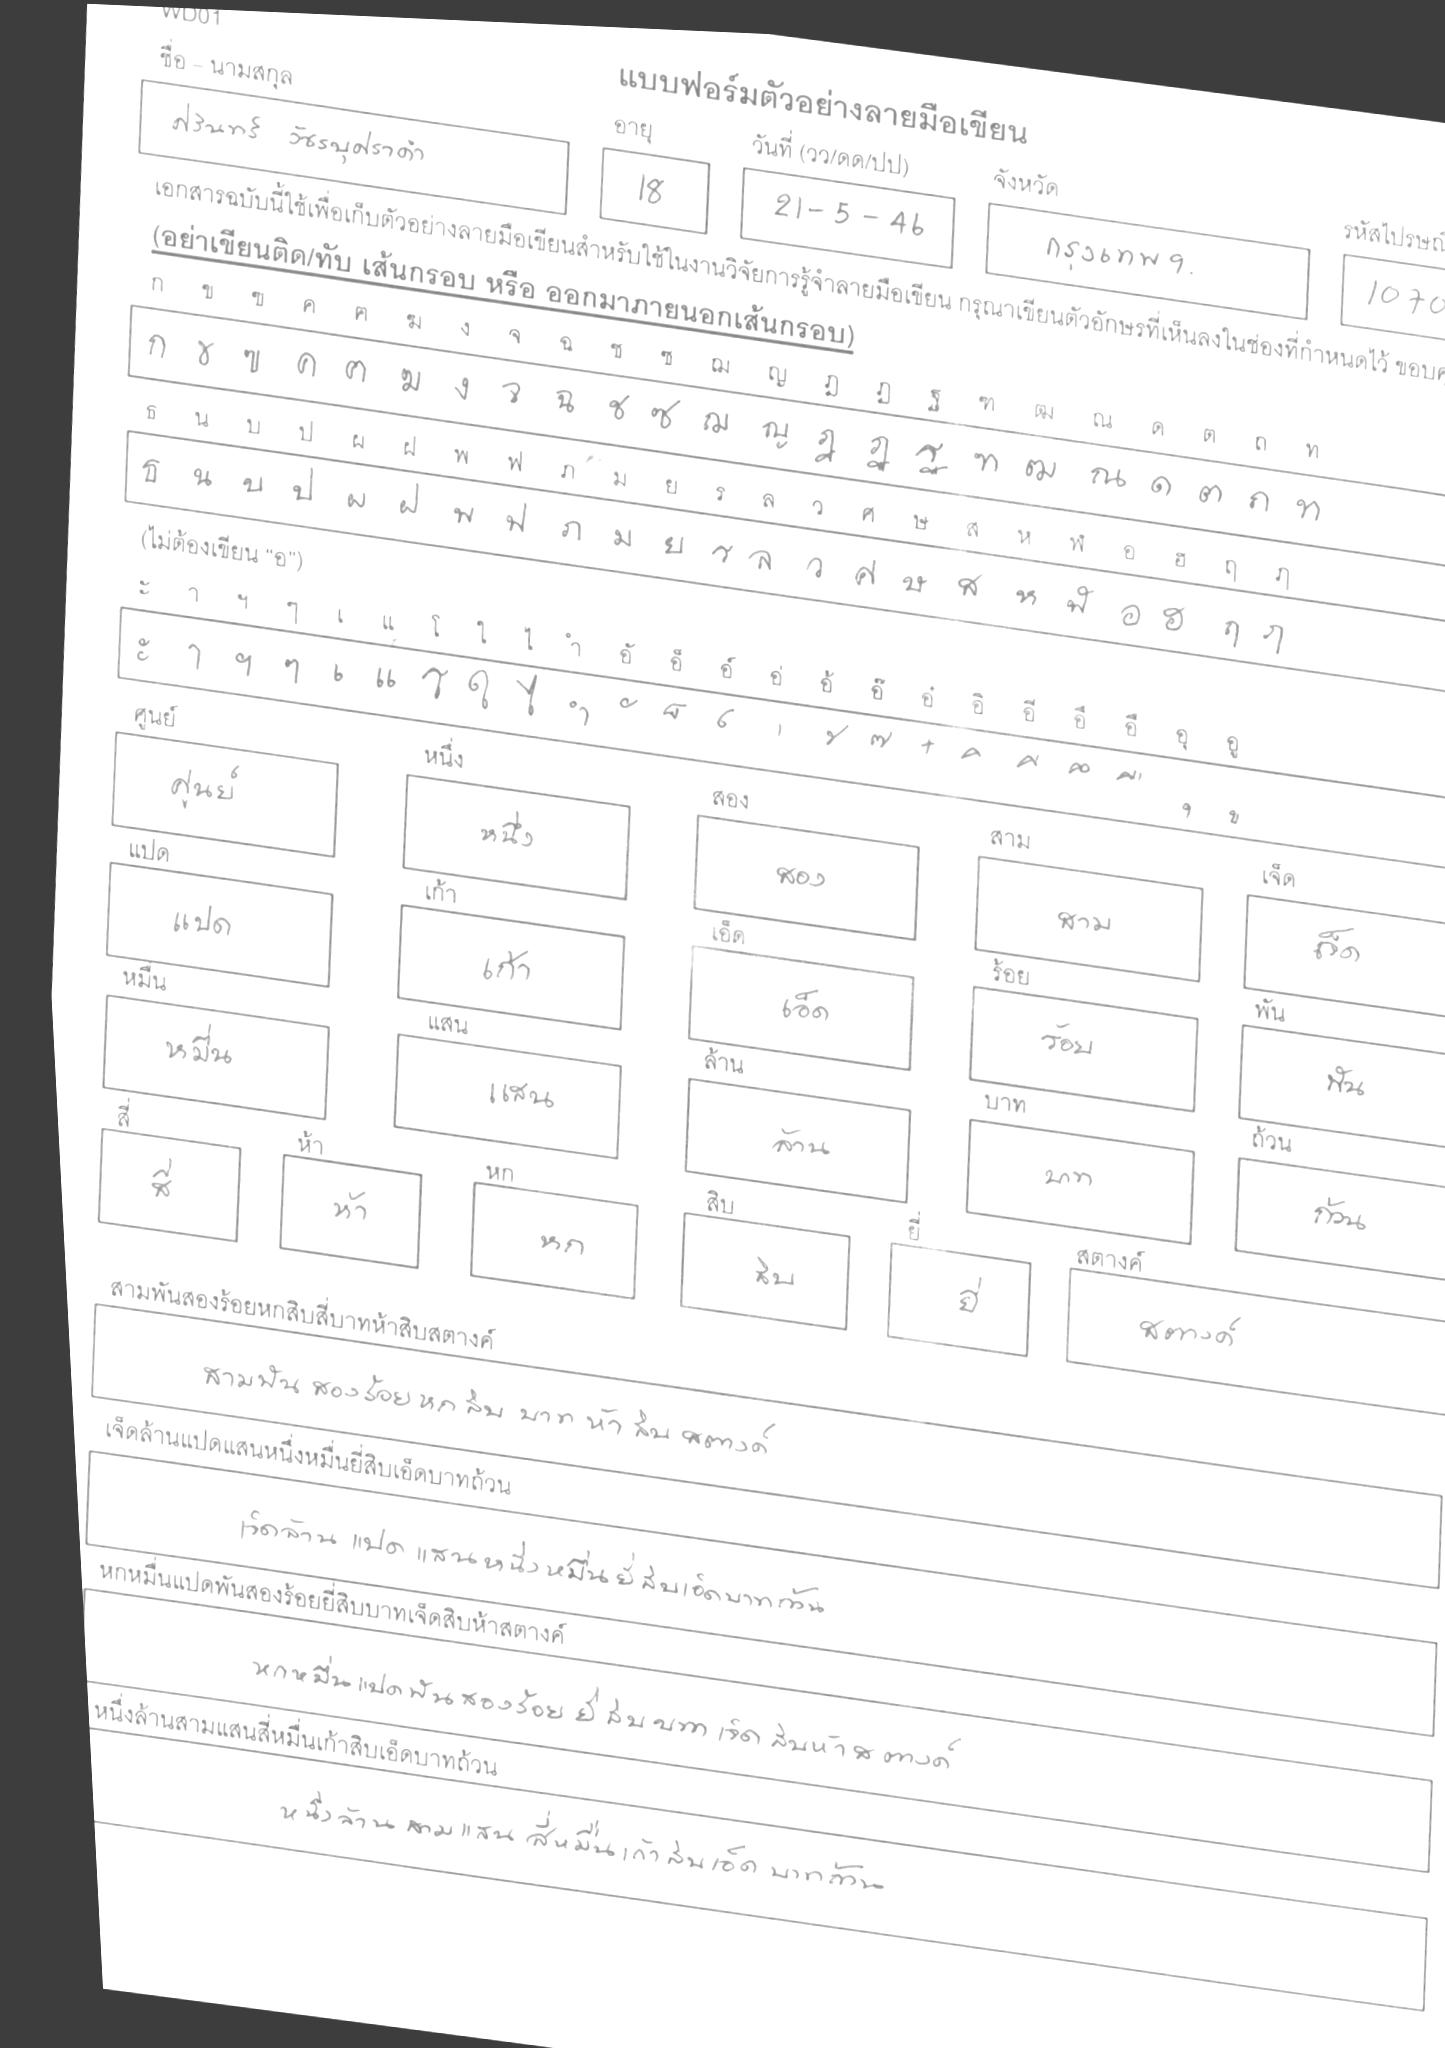 WD01
แบบฟอร์มตัวอย่างลายมือเขียน
ชื่อ – นามสกุล
อายุ
วันที่ (วว/ดด/ปป)
จังหวัด
รหัสไปรษณี
18
21 - 5 - 46
กรุงเทพฯ.
1070
เอกสารฉบับนี้ใช้เพื่อเก็บตัวอย่างลายมือเขียนสำหรับใช้ในงานวิจัยการรู้จำลายมือเขียน กรุณาเขียนตัวอักษรที่เห็นลงในช่องที่กำหนดไว้ ขอบค
(อย่าเขียนติด/ทับ เส้นกรอบ หรือ ออกมาภายนอกเส้นกรอบ)
ก ข ฃ ค ฅ ฆ ง จ ฉ ช ซ ฌ ญ ฎ ฏ ฐ ฑ ฒ ณ ด ต ถ ท
ก ข ฃ ค ฅ ฆ ง จ ฉ ช ซ ฌ ญ ฎ ฏ ฐ ฑ ฒ ณ ด ต ถ ท
ธ น บ ป ผ ฝ พ ฟ ภ ม ย ร ล ว ศ ษ ส ห ฬ อ ฮ ฤ ฦ
ธ น บ ป ผ ฝ พ ฟ ภ ม ย ร ล ว ศ ษ ส ห ฬ อ ฮ ฤ ฦ
(ไม่ต้องเขียน "อ")
ะ า ฯ ๆ เ แ โ ใ ไ ำ อั อ็ อ์ อ่ อ้ อ๊ อ๋ อิ อี อึ อื อุ อู
ะ า ฯ ๆ เ แ โ ใ ไ ำ ั ็ ์ ่ ้ ๊ ๋ ิ ี ึ ื ุ ู
ศูนย์ หนึ่ง สอง สาม เจ็ด
ศูนย์ หนึ่ง สอง สาม เจ็ด
แปด เก้า เอ็ด ร้อย พัน
แปด เก้า เอ็ด ร้อย พัน
หมื่น แสน ล้าน บาท ถ้วน
หมื่น แสน ล้าน บาท ถ้วน
สี่ ห้า หก สิบ ยี่ สตางค์
สี่ ห้า หก สิบ ยี่ สตางค์
สามพันสองร้อยหกสิบสี่บาทห้าสิบสตางค์
สามพัน สองร้อย หก สิบ บาท ห้า สิบ สตางค์
เจ็ดล้านแปดแสนหนึ่งหมื่นยี่สิบเอ็ดบาทถ้วน
เจ็ดล้าน แปด แสน หนึ่ง หมื่น ยี่ สิบเอ็ดบาทถ้วน
หกหมื่นแปดพันสองร้อยยี่สิบบาทเจ็ดสิบห้าสตางค์
หกหมื่น แปดพัน สองร้อย ยี่ สิบ บาท เจ็ด สิบห้า สตางค์
หนึ่งล้านสามแสนสี่หมื่นเก้าสิบเอ็ดบาทถ้วน
หนึ่งล้าน สาม แสน สี่หมื่น เก้า สิบ เอ็ด บาทถ้วน